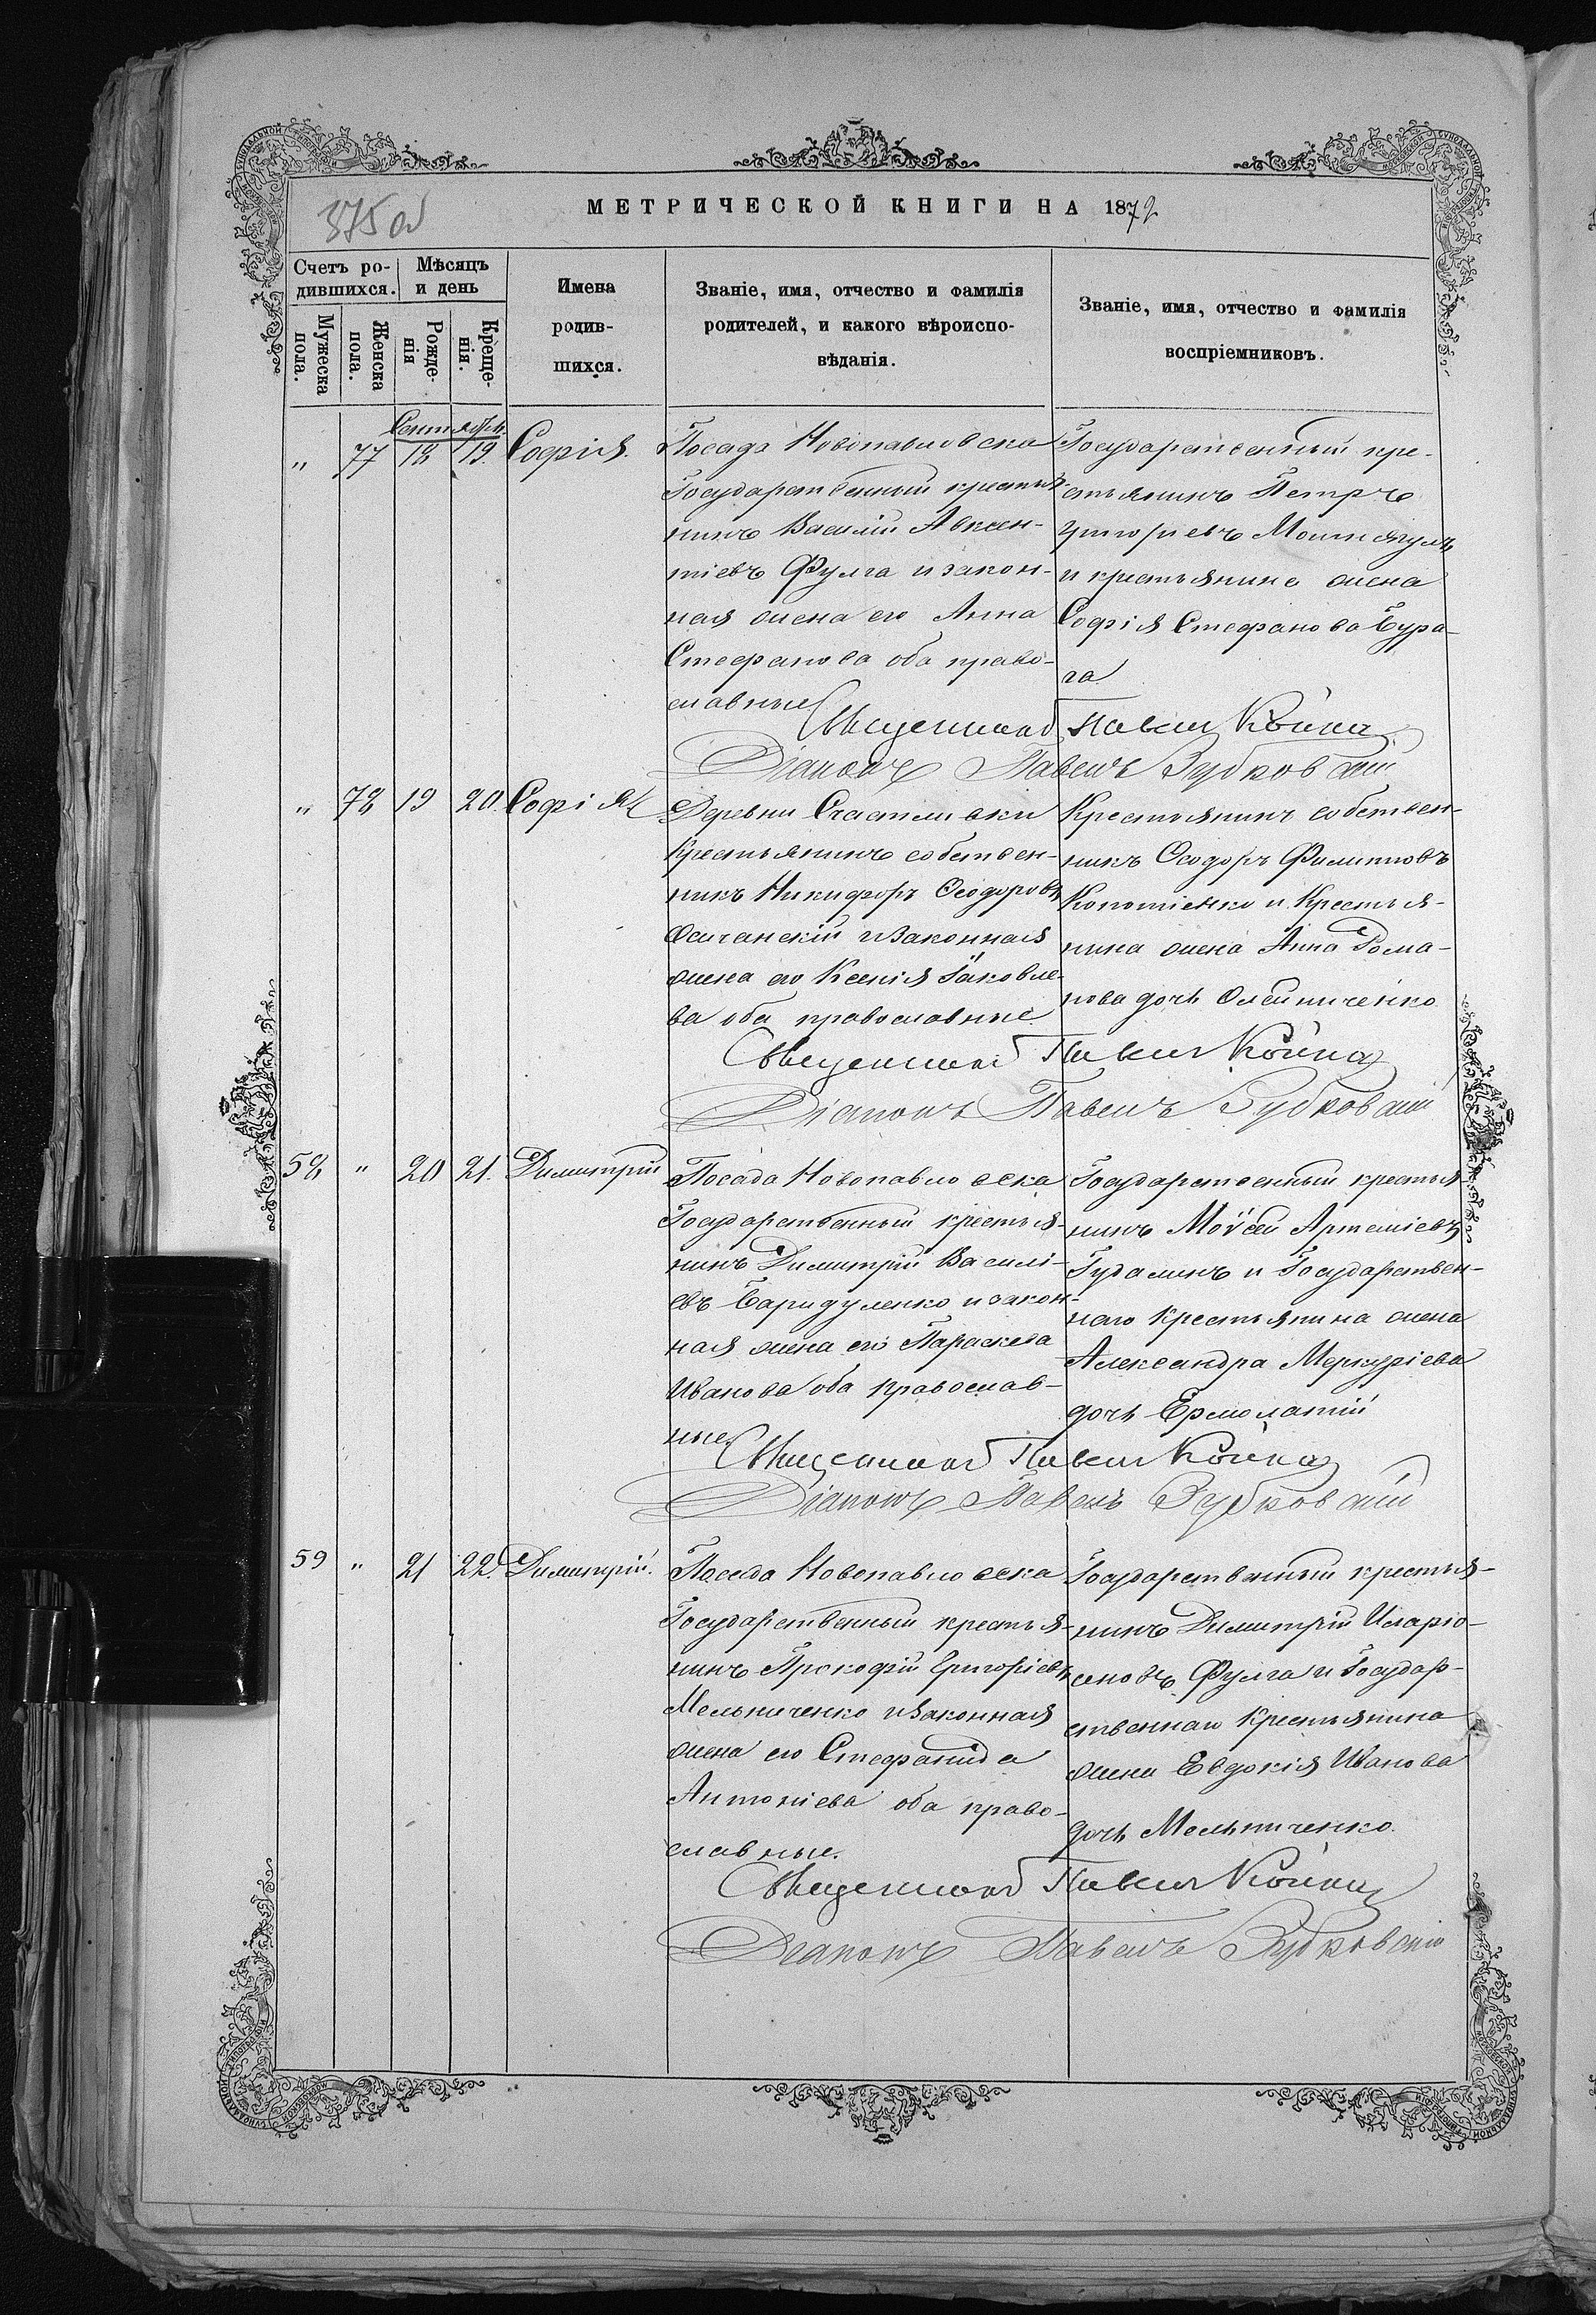 375 об
МЕТРИЧЕСКОЙ КНИГИ НА 1872
Счетъ ро-
дившихся.
Мѣсяцъ
и день
Мужеска
пола.
Женска
пола.
Рожде-
нія
Креще-
нія.
Имена
родив-
шихся.
Званіе, имя, отчество и фамилія
родителей, и какого вѣроиспо-
вѣданія.
Званіе, имя, отчество и фамилія
воспріемниковъ.
Сентябрь
" 77 18 19. Софія.
Посада Новопавловска
Государственный крестья-
нинъ Василій Авксен-
тіевъ Фулга и закон-
ная жена его Анна
Стефанова оба право-
славные
Государственный кре-
стьянинъ Петръ
Григорьевъ
и крестьянина жена
Софія Стефанова Бура-
га
Священникъ Павелъ Койка
Діаконъ Павелъ Зубковскій
" 78 19 20. Софія
Деревни Счастливки
Крестьянинъ собствен-
никъ Никифоръ Ѳеодоровъ
Осичанскій и законная
жена его Ксенія Іаковле-
ва оба православные.
Крестьянинъ собствен-
никъ Ѳеодоръ Филипповъ
Копотіенко и Крестья-
нина жена Анна Рома-
нова дочь Олейниченко
Священникъ Павелъ Койка
Діаконъ Павелъ Зубковскій
58 " 20 21. Димитрій
Посада Новопавловска
Государственный крестья-
нинъ Димитрій Василі-
евъ и закон-
ная жена его Параскева
Иванова оба православ-
ные
Государственный крестья-
нинъ Моѵсей Артеміевъ
и Государствен-
наго Крестьянина жена
Александра Меркуріева
дочь Ермолатій
Священникъ Павелъ Койка
Діаконъ Павелъ Зубковскій
59 " 21 22. Димитрій.
Посада Новопавловска
Государственный крестья-
нинъ Прокофій Григоріевъ
Мельниченко и законная
жена его Стефанида
Антоніева оба право-
славные.
Государственный крестья-
нинъ Димитрій Иларіо-
новъ Фулга и Государ-
ственнаго Крестьянина
жена Евдокія Иванова
дочь Мельниченко.
Священникъ Павелъ Койка
Діаконъ Павелъ Зубковскій